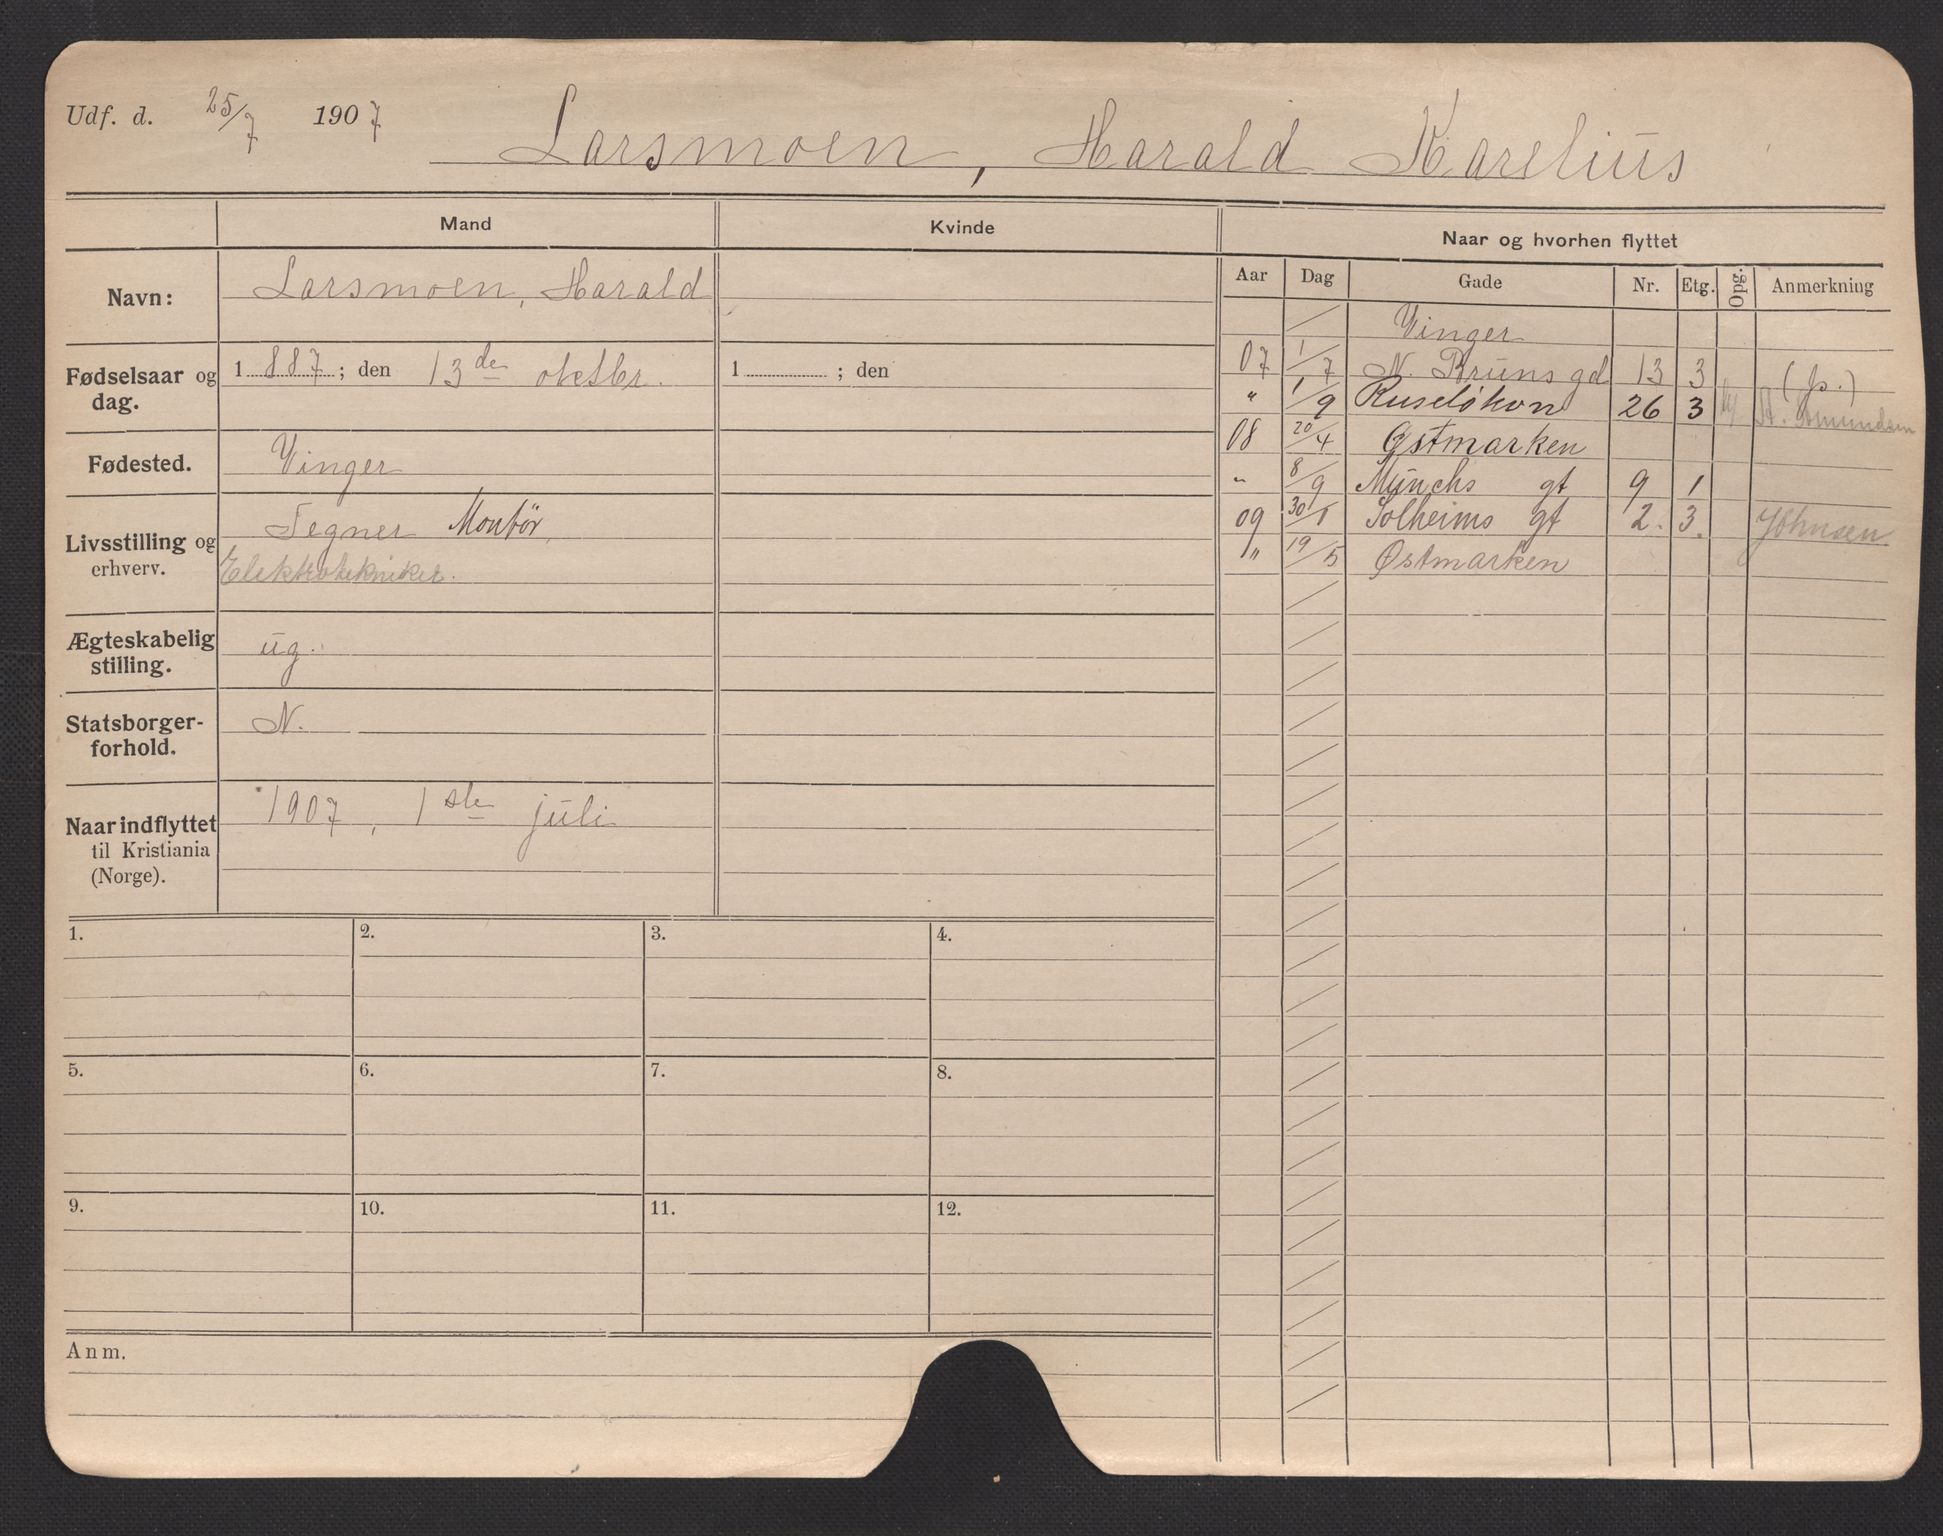 Udf. d. 25/7 1907
Larsmoen, Harald Karelius
Mand
Kvinde
Naar og hvorhen flyttet
Navn: Larsmoen, Harald
Fødselsaar og dag. 1887; den 13de oktbr. 1 ; den
Fødested. Vinger
Livsstilling og Tegner Montør,
erhverv. Elektrotekniker.
Ægteskabelig stilling. ug.
Statsborger-
forhold. N.
Naar indflyttet 1907, 1ste juli
til Kristiania
(Norge).
Aar Dag Gade Nr. Etg. Opg. Anmerkning
/ Vinger
07 1/7 N. Bruns gd 13 3
" 1/9 Ruseløkvn 26 3 St.
08 20/4 Østmarken
" 8/9 Munchs gt 9 1
09 30/1 Solheims gt 2. 3. Johnsen.
" 19/5 Østmarken
1. 2. 3. 4.
5. 6. 7. 8.
9. 10. 11. 12.
Anm.